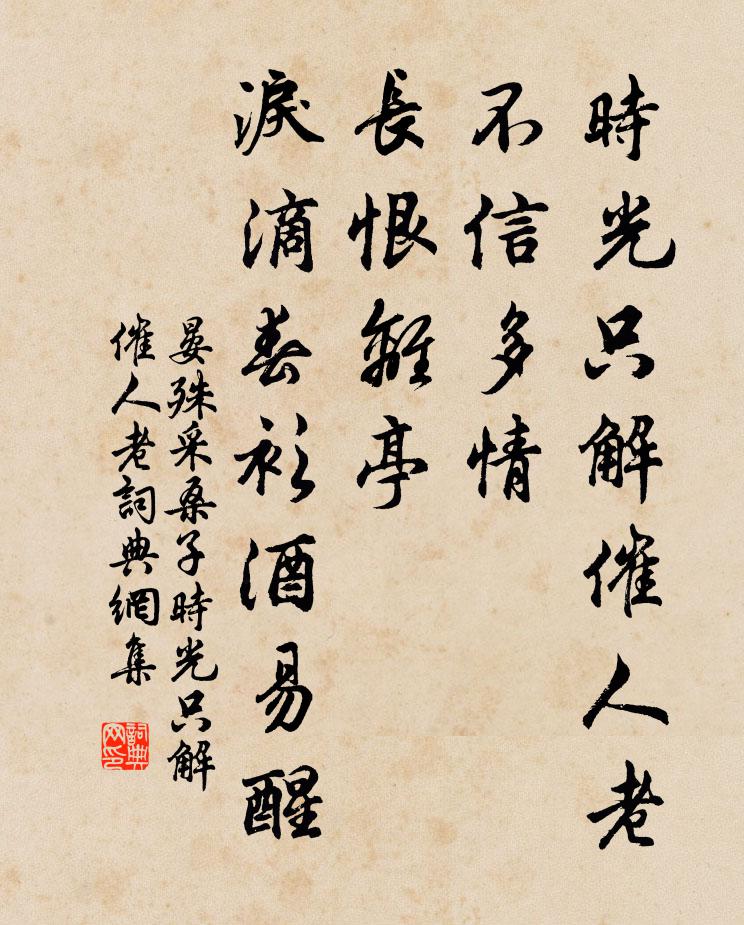 時光只解催人老
不信多情
長恨離亭
淚滴春衫酒易醒
晏殊采桑子時光只解
催人老詞典網集
詞典
网印